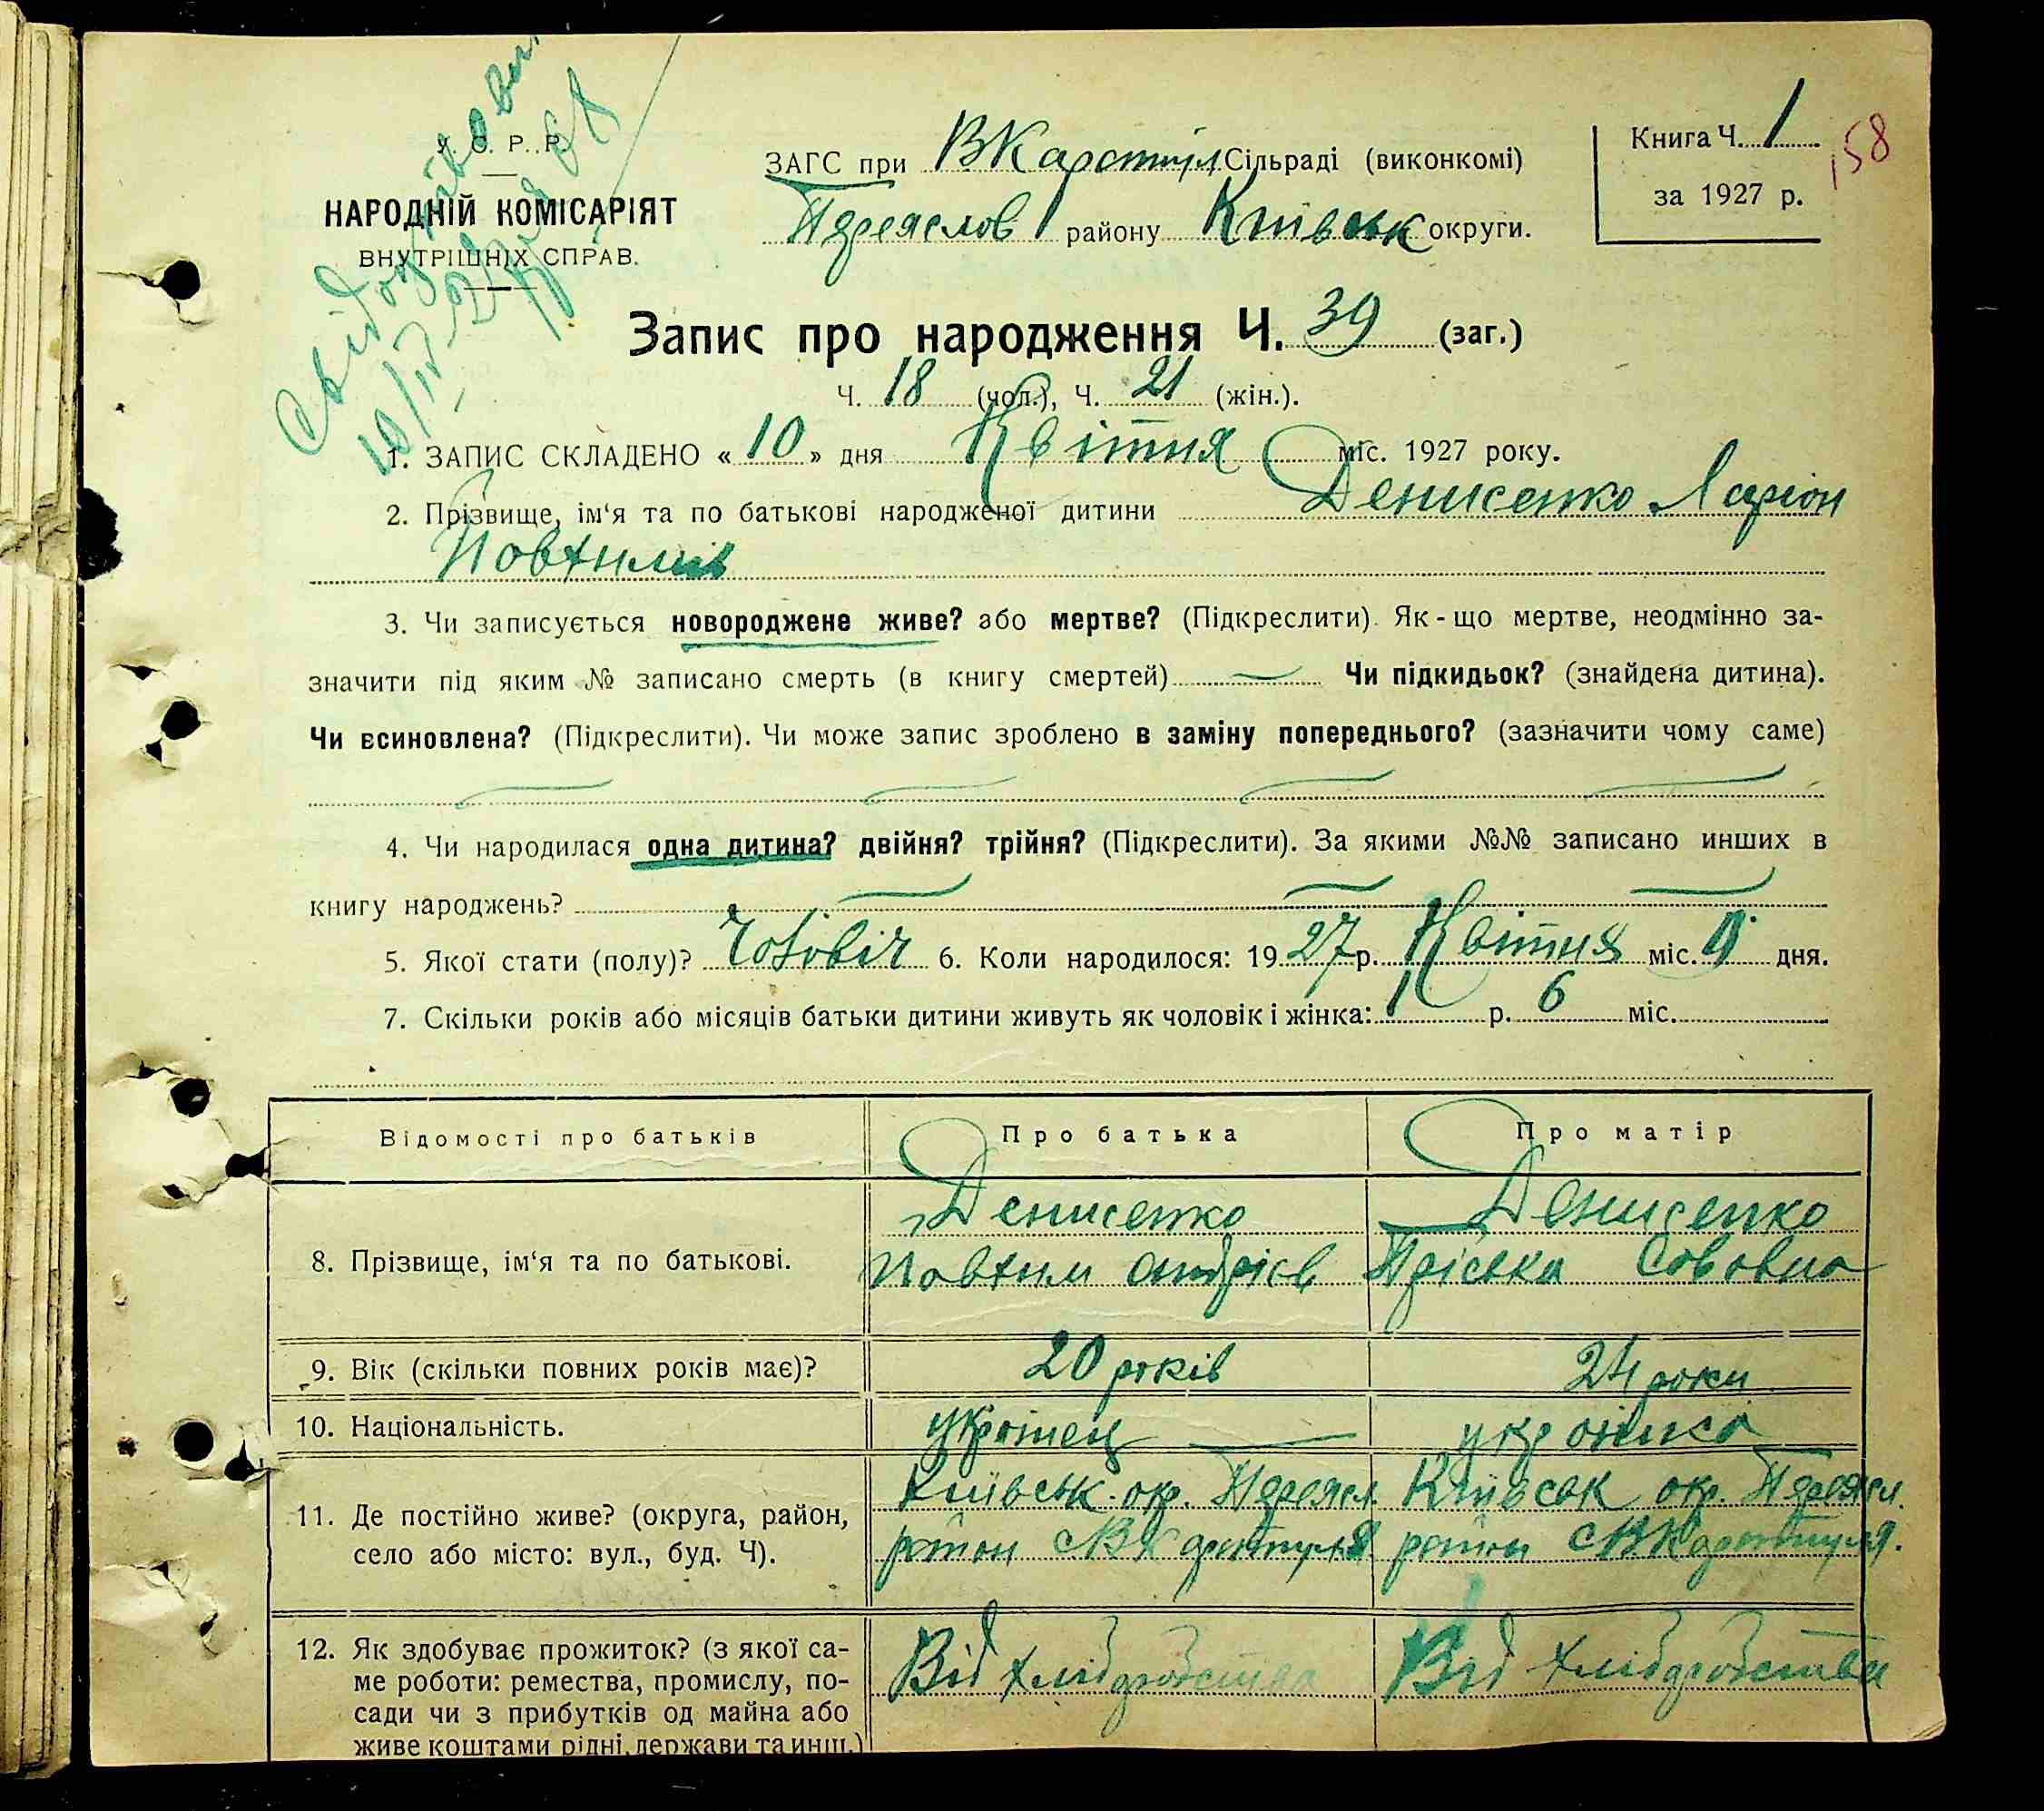 У. С. Р. Р.
НАРОДНІЙ КОМІСАРІЯТ
ВНУТРІШНІХ СПРАВ.
ЗАГС при ВКаратул Сільраді (виконкомі)
Переяслов району Київськ округи.
Книга Ч. 1
за 1927 р.
158
Запис про народження Ч. 39 (заг.)
Ч. 18 (чол.), Ч. 21 (жін.).
1. ЗАПИС СКЛАДЕНО « 10 » дня Квітня міс. 1927 року.
2. Прізвище, ім‘я та по батькові народженої дитини Денисенко Ларіон
Йовхимів
3. Чи записується новороджене живе? або мертве? (Підкреслити). Як-що мертве, неодмінно за-
значити під яким № записано смерть (в книгу смертей) Чи підкидьок? (знайдена дитина).
Чи всиновлена? (Підкреслити). Чи може запис зроблено в заміну попереднього? (зазначити чому саме)
4. Чи народилася одна дитина? двійня? трійня? (Підкреслити). За якими №№ записано инших в
книгу народжень?
5. Якої стати (полу)? Чоловіч 6. Коли народилося: 1927 р. Квітня міс. дня.
7. Скільки років або місяців батьки дитини живуть як чоловік і жінка: 1 р. 6 міс.
Відомості про батьків Про батька Про матір
8. Прізвище, ім‘я та по батькові.
Денисенко
Йовхим Андрієв
Денисенко
Пріська Саввовна
9. Вік (скільки повних років має)? 20 років 24 роки
10. Національність. українец українка
11. Де постійно живе? (округа, район,
село або місто: вул., буд. Ч).
Київськ. окр. Переясл.
район с ВКаратуля
Київськ окр. Переясл.
район с ВКаратуля.
12. Як здобуває прожиток? (з якої са-
ме роботи: ремества, промислу, по-
сади чи з прибутків од майна або
живе коштами рідні, держави та инш.)
Від хлібаробства
Від хлібаробства